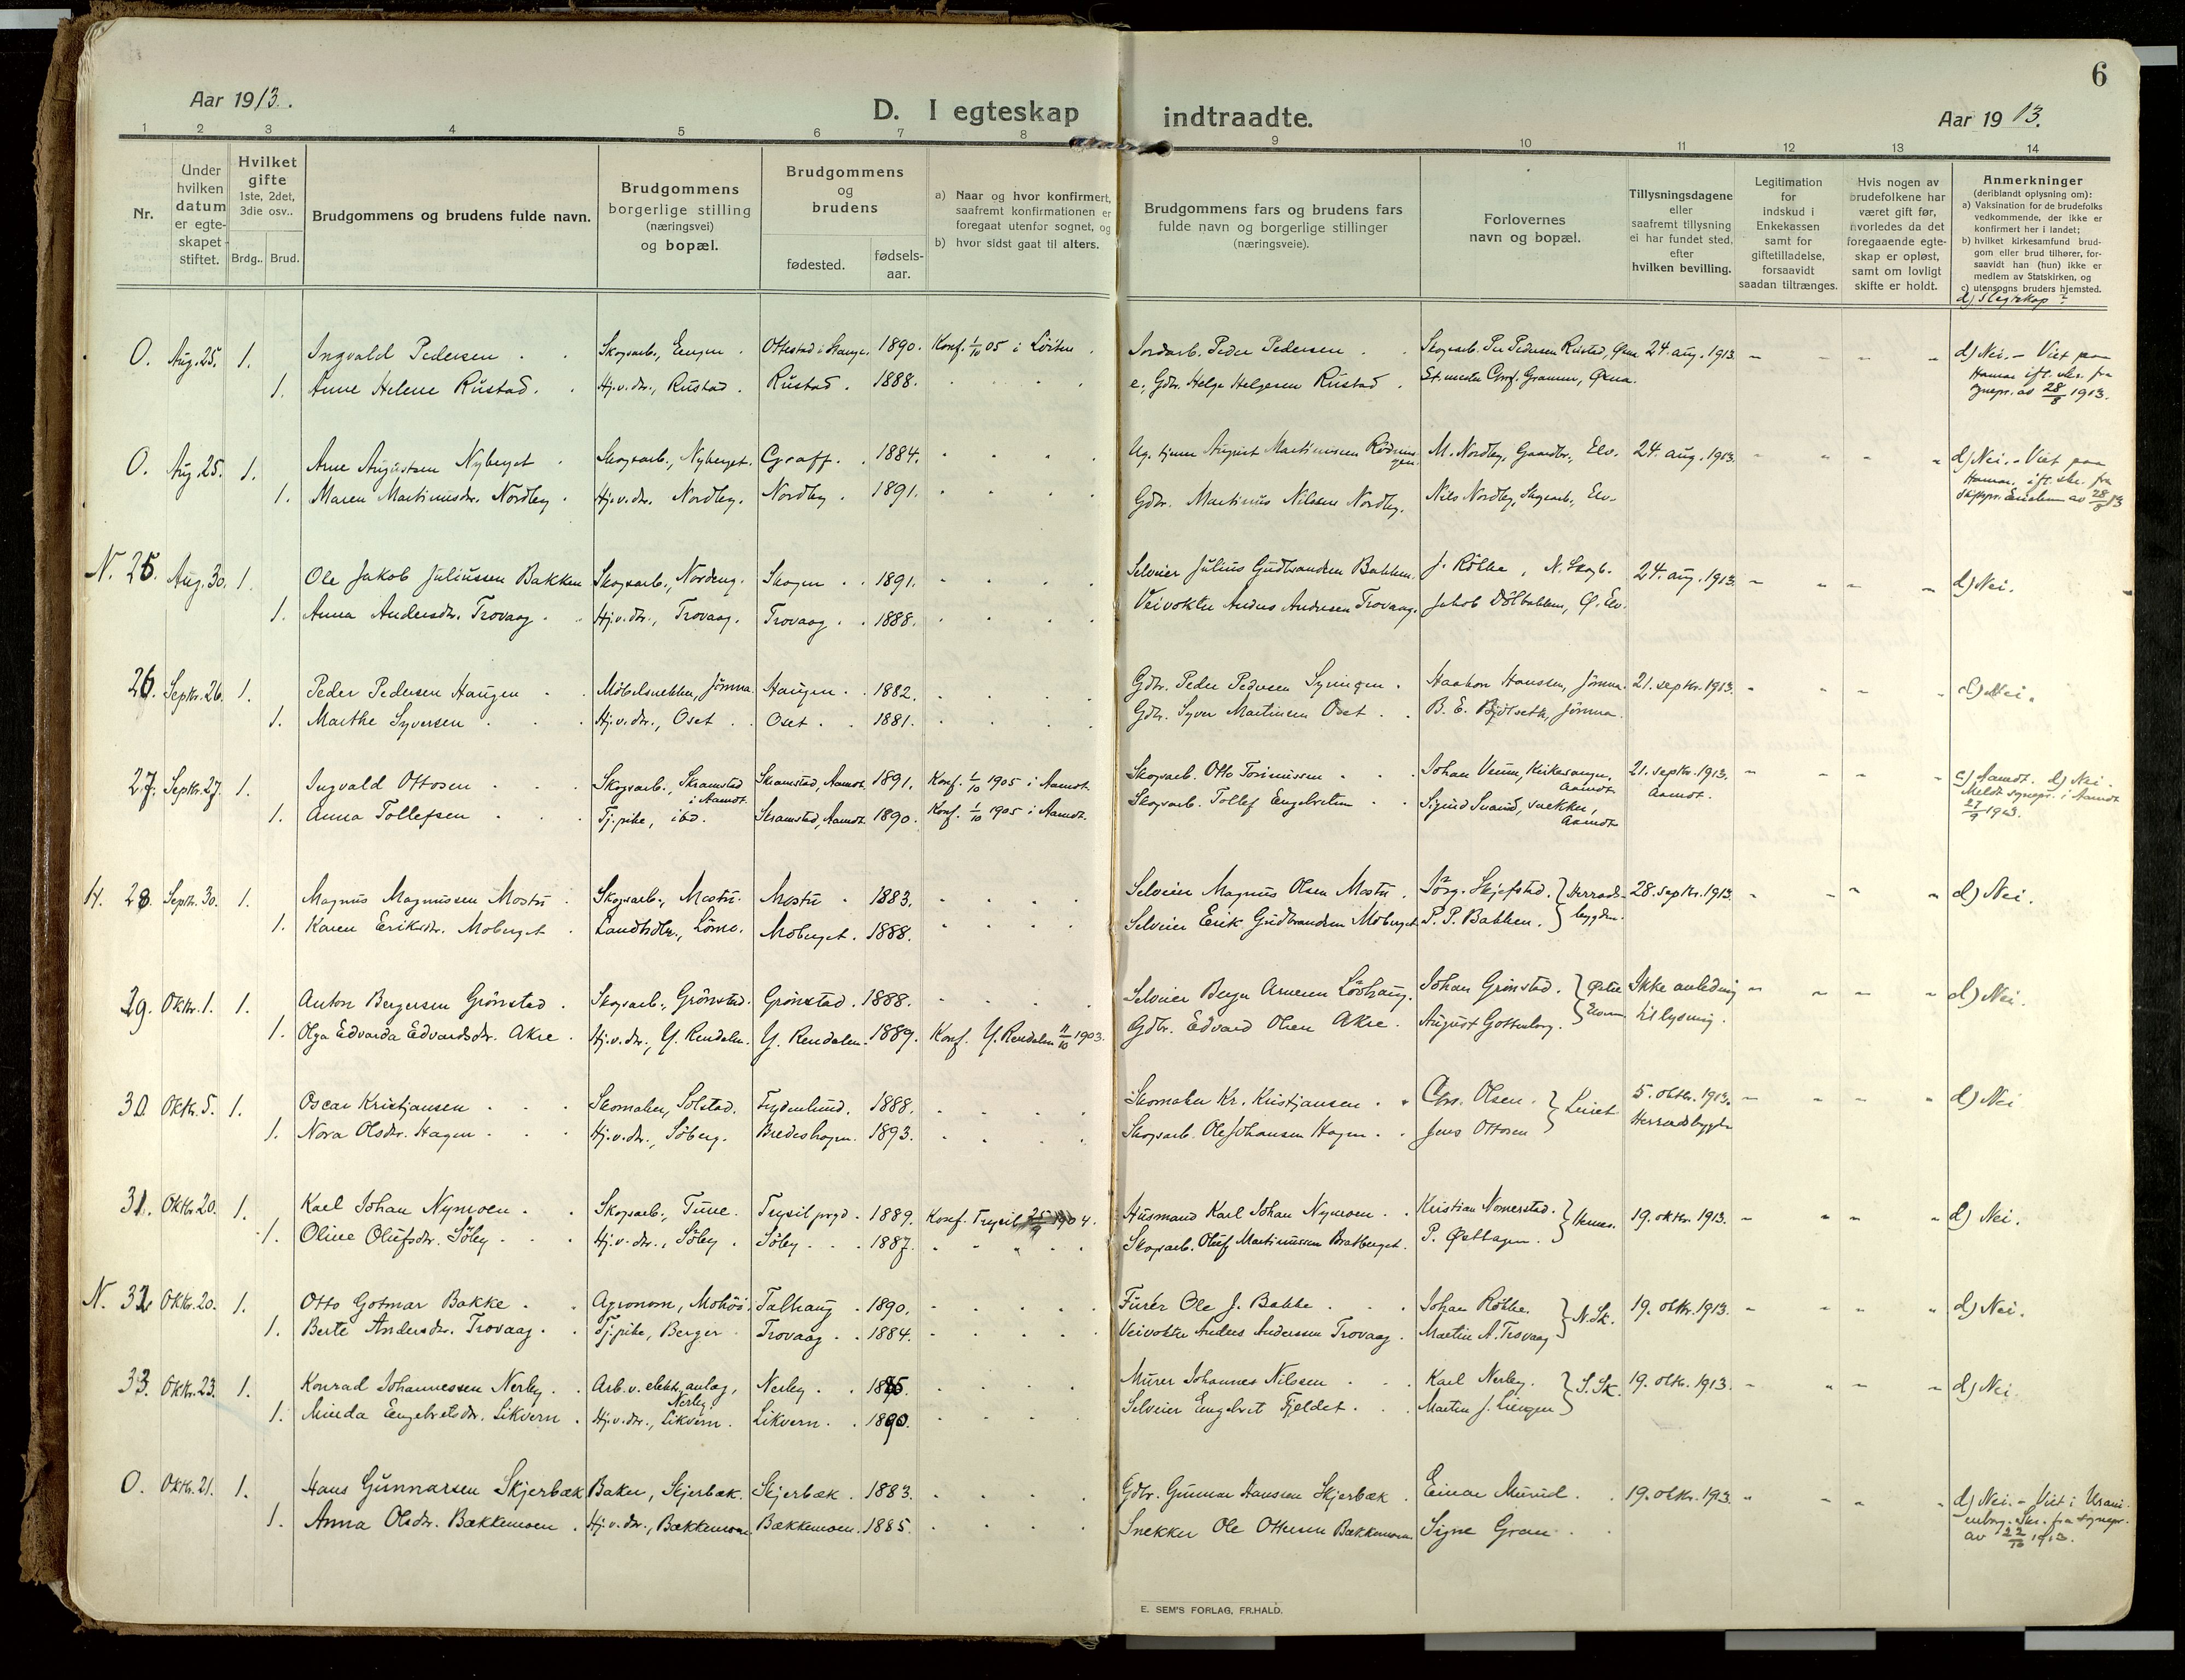 6
Aar 1913.
D. I egteskap indtraadte.
Aar 1913.
1 2 3 4 5 6 7 8 9 10 11 12 13 14
Nr.
Under hvilken datum er egteskapet stiftet.
Hvilket gifte 1ste, 2det, 3die osv..
Brdg.. Brud.
Brudgommens og brudens fulde navn.
Brudgommens borgerlige stilling (næringsvei) og bopæl.
Brudgommens og brudens
fødested. fødselsaar.
a) Naar og hvor konfirmert, saafremt konfirmationen er foregaat utenfor sognet, og
b) hvor sidst gaat til alters.
Brudgommens fars og brudens fars fulde navn og borgerlige stillinger (næringsveie).
Forlovernes navn og bopæl.
Tillysningsdagene eller saafremt tillysning ei har fundet sted, efter hvilken bevilling.
Legitimation for indskud i Enkekassen samt for giftetilladelse, forsaavidt saadan tiltrænges.
Hvis nogen av brudefolkene har været gift før, hvorledes da det foregaaende egteskap er opløst, samt om lovligt skifte er holdt.
Anmerkninger (deriblandt oplysning om):
a) Vaksination for de brudefolks vedkommende, der ikke er konfirmert her i landet;
b) hvilket kirkesamfund brudgom eller brud tilhører, forsaavidt han (hun) ikke er medlem av Statskirken, og
c) utensogns bruders hjemsted.
d) Slegtskap?
O. Aug. 25. 1. Ingvald Pedersen Skogsarb., Engen. Ottestad i Stange. 1890. Konf. 1/10 05 i Löiten. Jordarb. Peder Pedersen Skogsarb. Per Pedersen Rustad, 24. aug. 1913. d) Nei. - Viet paa
1. Anne Helene Rustad. Hj.v.dr., Rustad. Rustad. 1888. e. Gdbr. Helge Helgesen Rustad. Hamar ift. skr. fra
sognepr. av 28/8 1913.
O. Aug. 25. 1. Arne Augustsen Nyberget Skogsarb., Nyberget. Graff. 1884. August Martinussen M. Nordby, Gaardbr., Elv. 24. aug. 1913. d) Nei. - Viet paa
1. Maren Martinusdr. Nordby. Hj.v.dr. Nordby. Nordby. 1891. Gdbr. Martinus Nilssen Nordby. Nils Nordby, Skogsarb., Elv. Hamar, ift. skr. fra
av 28/8 13
N. 25. Aug. 30. 1. Ole Jakob Juliussen Bakken Skogsarb., Nordeng. Skogen 1891. Selveier Julius Gudbrandsen Bakken. J. Rökke, N. Skogb. 24. aug. 1913. d) Nei.
1. Anna Andersdr. Trovaag. Hj.v.dr., Trovaag. Trovaag. 1888. Veivokter Anders Andersen Trovaag. Jakob Dölbakken, Ø. Elv.
26. Septr. 26. 1. Peder Pedersen Haugen Möbelsnekker, Jömna. Haugen. 1882. Gdbr. Peder Pedersen Haakon Hanssen, Jömna. 21. septbr. 1913. d) Nei.
1. Marthe Syversen Hj.v.dr., Oset. Oset. 1881. Gdbr. Syver Martinsen Oset. B. E. Bjölseth, Jömna.
27. Septr. 27. 1. Ingvald Ottosen Skogsarb., Skramstad i Aamodt. Skramstad, Aamodt. 1891. Konf. 1/10 1905 i Aamodt. Skogsarb. Otto Johan Veum, Kirkesanger, Aamodt 21. septbr. 1913. Aamodt. c) Aamodt. d) Nei.
1. Anna Tollefsen Tj.pike, ibd. Skramstad, Aamodt. 1890. Konf. 1/10 1905 i Aamodt. Skogsarb. Tollef Engebretsen Sigurd Svand, snekker, Aamodt Meldt sognepr. i Aamodt
27/9 1913.
H. 28. Septr. 30. 1. Magnus Magnussen Mostu Skogsarb., Mostu. Mostu 1883. Selveier Magnus Olsen Mostu. Jörg. Skjefstad. Herradsbygden. 28. septbr. 1913. d) Nei.
1. Karen Eriksdr. Moberget Landhdlr., Lömo. Moberget. 1888. Selveier Erik Gudbrandsen Moberget P. P. Bakken.
29. Oktr. 1. 1. Anton Bergersen Grönstad. Skogsarb., Grönstad. Grönstad. 1888. Selveier Berger Arnesen Lövhaug. Johan Grönstad. Østre Elverum Ikke anledning d) Nei.
1. Olga Edvarda Edvardsdr. Akre. Hj.v.dr., Y. Rendalen. Y. Rendalen. 1889. Konf. Y. Rendalen 11/10 1903. Gdbr. Edvard Olsen Akre. August Gottenborg. til lysning.
30. Oktr. 5. 1. Oscar Kristjansen Skomaker, Solstad. Frydenlund. 1888. Skomaker Kr. Kristjansen. Chrs. Olsen. Leiret 5. oktbr. 1913. d) Nei
1. Nora Olsdr. Hagen Hj.v.dr., Söberg. Bredeshagen. 1893. Skogsarb. Ole Johansen Hagen. Jens Ottosen Herradsbygden
31. Oktr. 20. 1. Karl Johan Nymoen. Skogsarb., Tune. Trysil prgd. 1889. Konf. Trysil 25/9 1904. Husmand Karl Johan Nymoen. Kristian Nomerstad. Hernes. 19. oktbr. 1913. d) Nei.
1. Oline Olufsdr. Söby Hj.v.dr., Söby. Söby. 1887. Skogsarb. Oluf Martinussen Bratberget. P. Østhagen.
N. 32. Oktr. 20. 1. Otto Gotmar Bakke. Agronom, Talhaug. 1890. Furér Ole J. Bakke Johan Rökke. N. Sk. 19. oktbr. 1913. d) Nei.
1. Berte Andersdr. Trovaag. Tj.pike, Berger Trovaag. 1884. Veivokter Anders Anderssen Trovaag. Martin A. Trovaag
33. Oktr. 23. 1. Konrad Johannessen Nerby. Arb. v. elektr. anlæg, Nerby. Nerby. Murer Johannes Nilssen Karl Nerby. S. Sk. 19. oktbr. 1913. d) Nei.
1. Minda Engebretsdr. Likvern. Hj.v.dr., Likvern. Likvern. 1890. Selveier Engebret Fjeldet. Martin J. Lingen
O. Oktr. 21. 1. Hans Gunnarsen Skjerbæk Baker, Skjerbæk. Skjerbæk. 1883. Gdbr. Gunnar Hanssen Skjerbæk. Einar Murud. 19. oktbr. 1913. d) Nei. - Viet i Uranienborg. Skr. fra sognepr.
1. Anna Olsdr. Bækkemoen. Hj.v.dr., Bækkemoen. Bækkemoen. 1885. Snekker Ole Ottersen Bækkemoen Signe Gran. av 22/10 1913.
E. SEM'S FORLAG, FR.HALD.